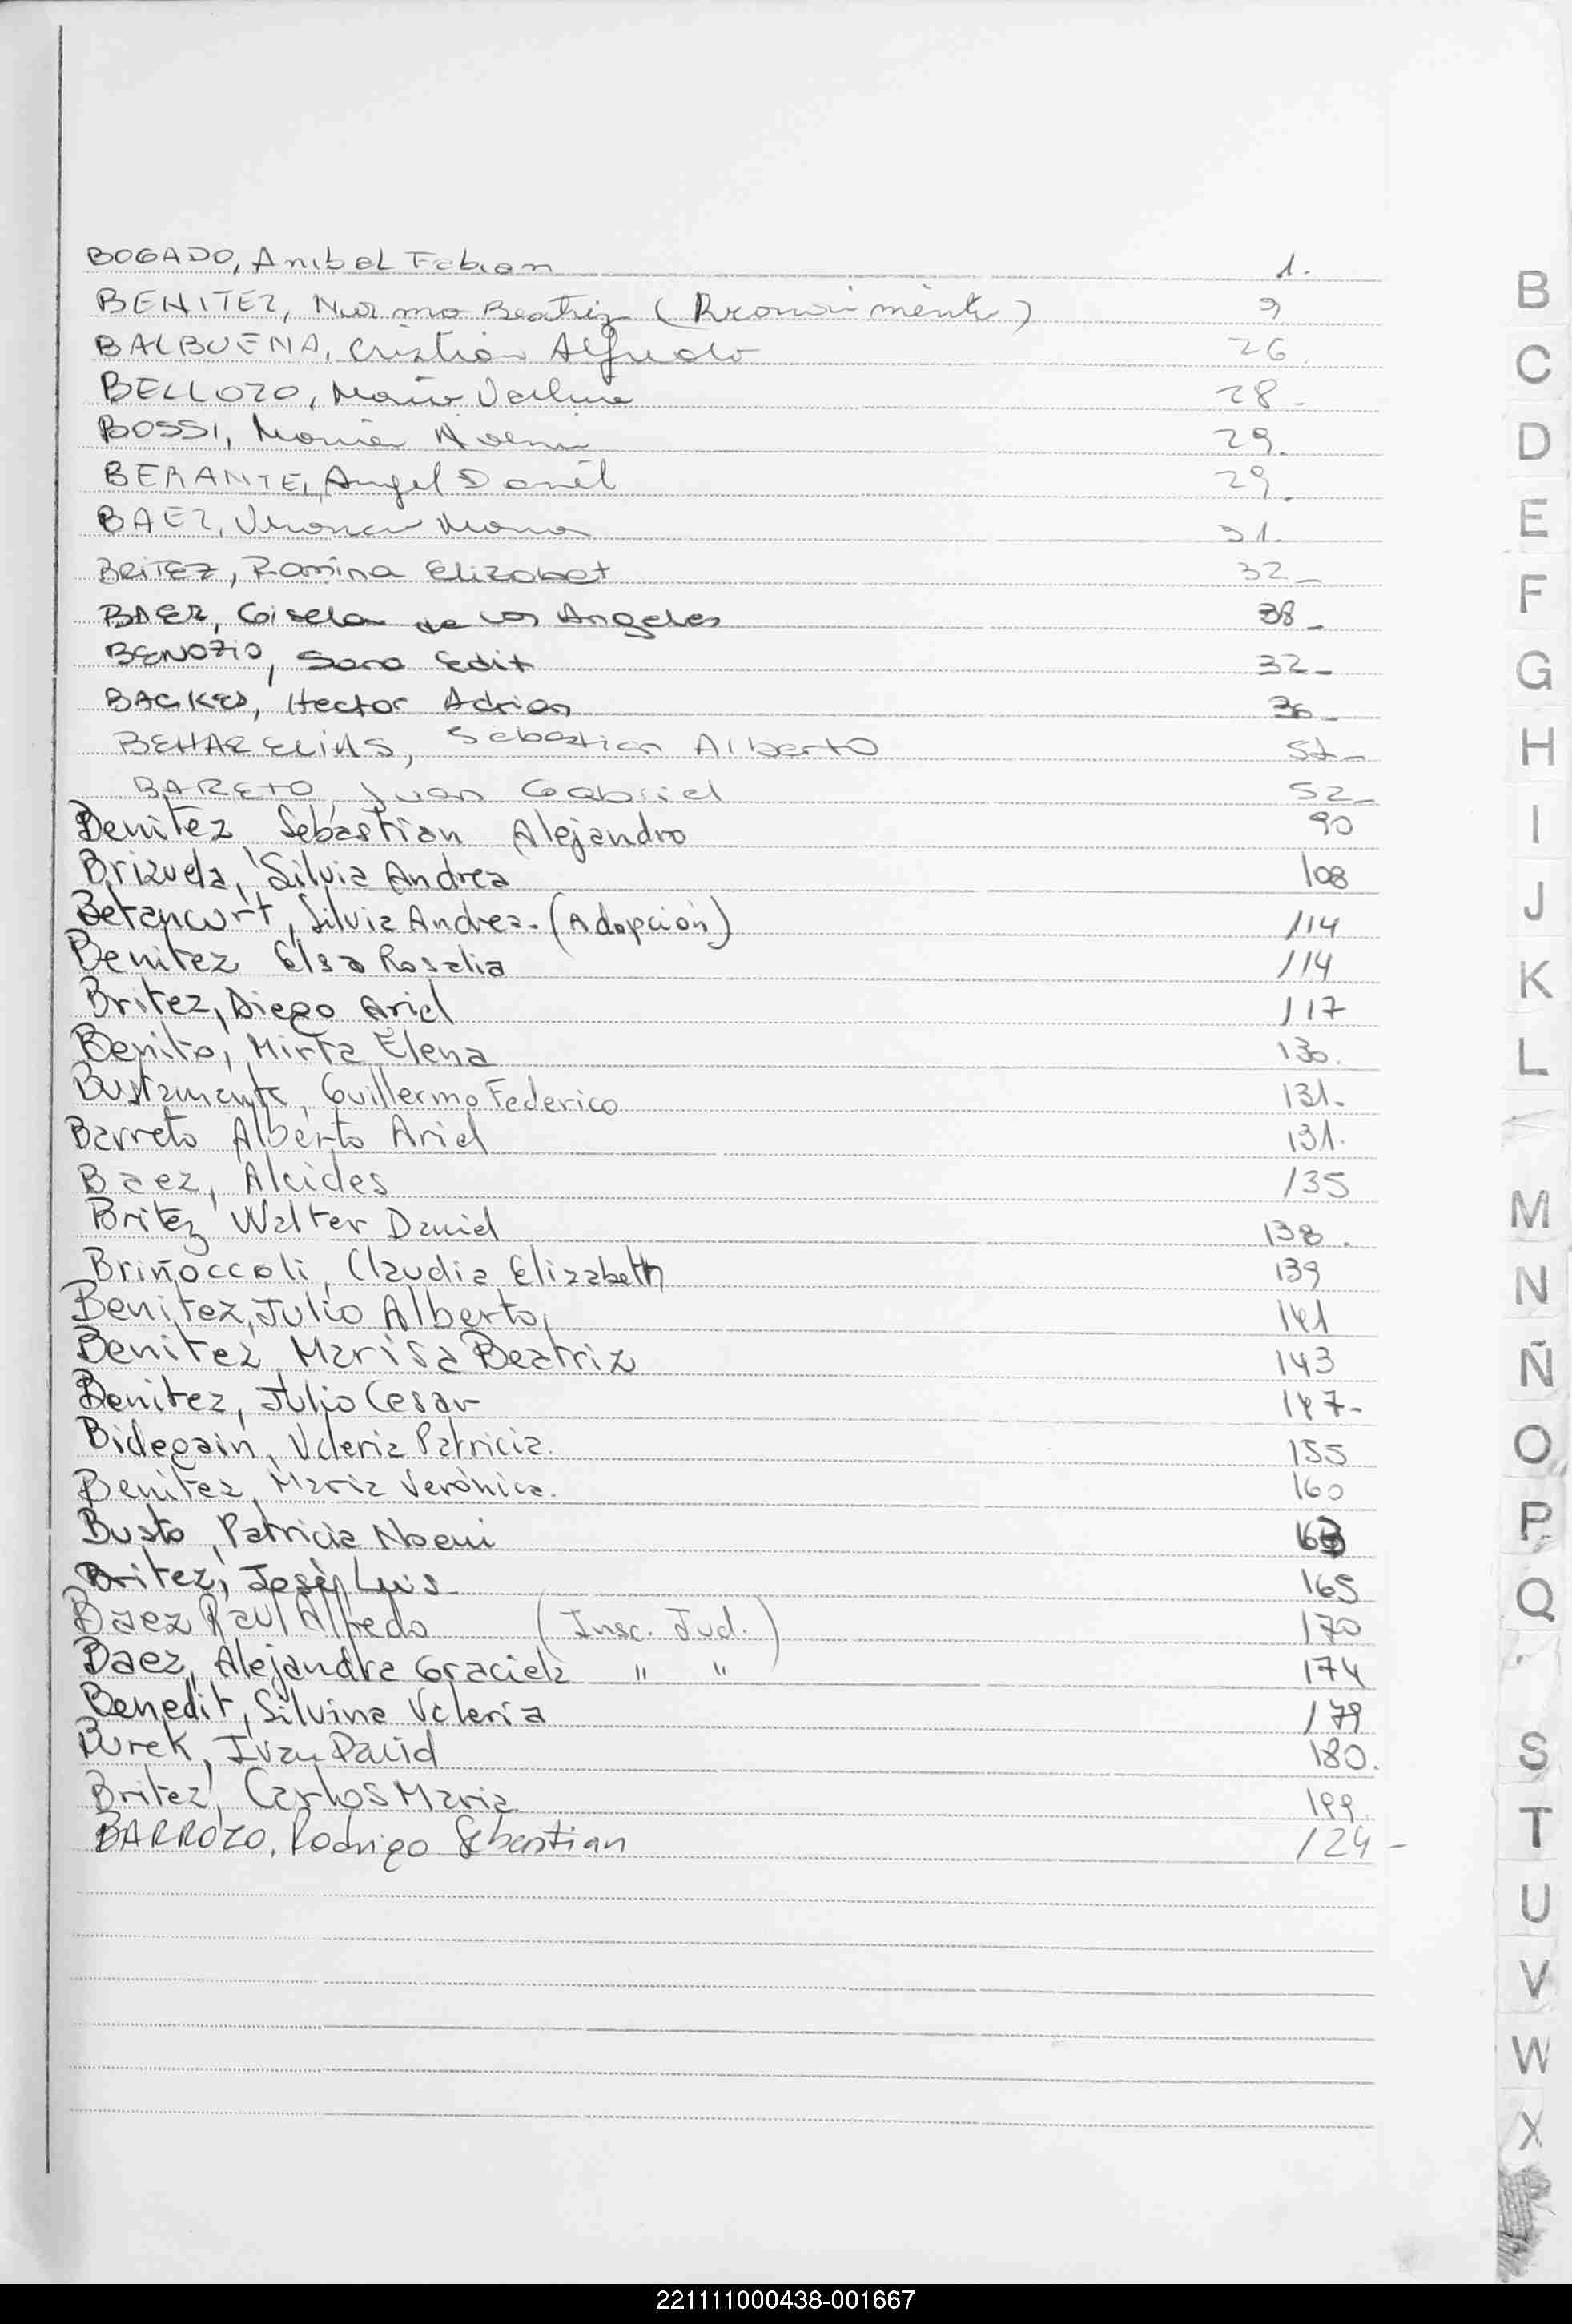 BOGADO, Anibal Fabian 1.
BENITEZ, Norma Beatriz (Reconocimiento) 9
BALBUENA, Cristian Alfredo 26
BELLOZO, Maria 28-
BOSSI, Maria Noemi 29.
BERANTE, Angel Daniel 29.
BAEZ, Veronica Maria 31.
BRITEZ, Romina Elizabet 32-
BAEZ, Gisela de los Angeles 38-
BENOZIO, Sara Edit 32-
BACKES, Hector Adrian 36-
Sebastian Alberto
BARETO, Juan Gabriel 52-
Benitez Sebastian Alejandro 90
Brizuela, Silvia Andrea 108
Betancurt, Silvia Andrea. (Adopción) 114
Benitez Elsa Rosalia 114
Britez, Diego Ariel 117
Benito, Mirta Elena 130.
Bustamante, Guillermo Federico 131.
Barreto Alberto Ariel 131.
Baez, Alcides 135
Britez Walter David 138.
Briñoccoli, Claudia Elizabeth 139
Benitez, Julio Alberto, 141
Benitez, Marisa Beatriz 143
Benitez, Julio Cesar 147-
Bidegain, Valeria Patricia. 155
Benitez, Maria Verónica. 160
Busto, Patricia Noemi 163
Britez, José Luis 165
Baez Raul Alfredo (Insc. Jud.) 170
Baez, Alejandra Graciela " " 174
Benedit, Silvina Valeria 179
Burek, Ivan David 180.
Britez, Carlos Maria 199.
BARROZO, Rodrigo Sebastian 124-
B
C
D
E
F
G
H
I
J
K
L
M
N
Ñ
O
P
Q
S
T
U
V
W
X
221111000438-001667